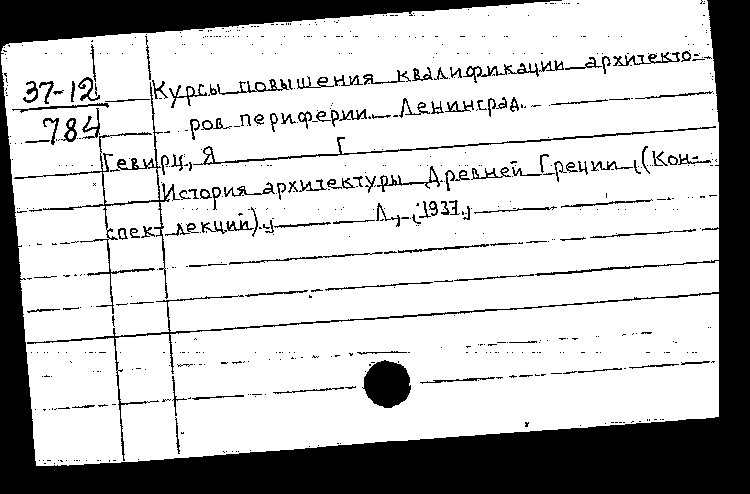 37-12
784
Курсы повышения квалификации архитекто-
ров периферии. Ленинград.
Гевирц, Я Г
История архитектуры Древней Греции, (Кон-
спект лекций)., Л., 1937.,